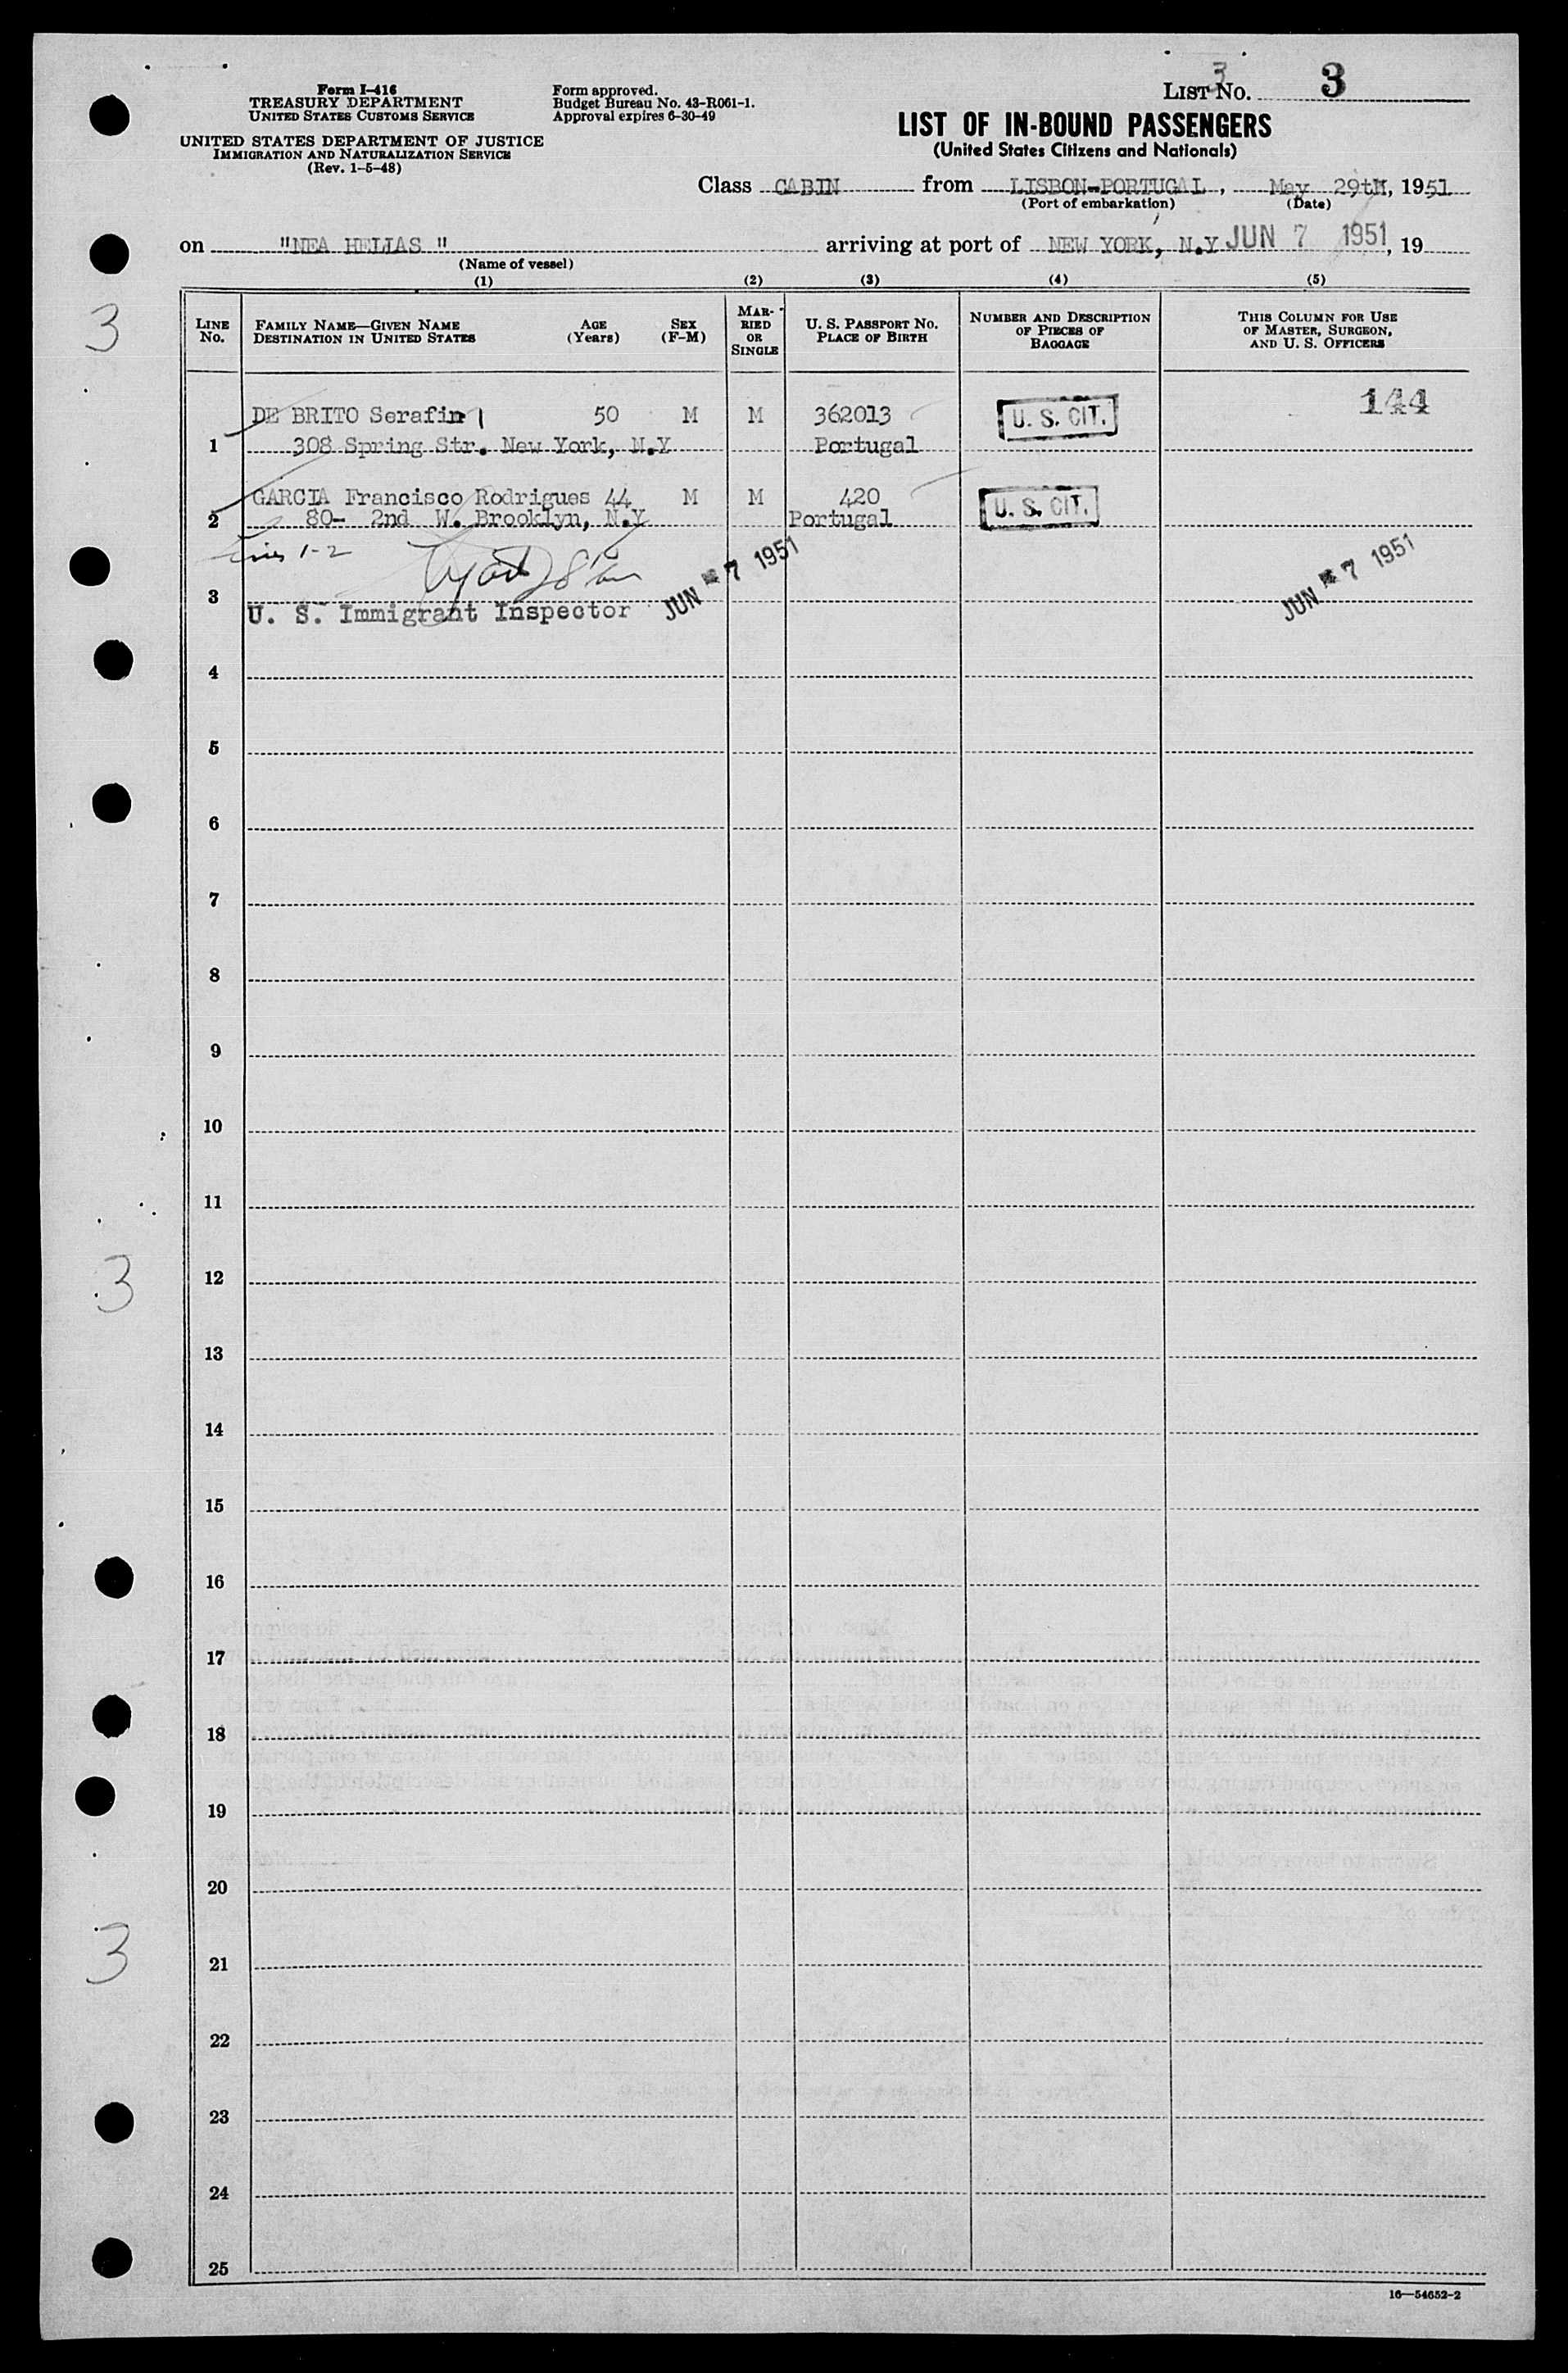 Form I-416
TREASURY DEPARTMENT
UNITED STATES CUSTOMS SERVICE
UNITED STATES DEPARTMENT OF JUSTICE
IMMIGRATION AND NATURALIZATION SERVICE
(Rev. 1-5-48)
Form approved.
Budget Bureau No. 43-R061-1.
Approval expires 6-30-49
3
LIST No. 3
LIST OF IN-BOUND PASSENGERS
(United States Citizens and Nationals)
Class CABIN from LISBON-PORTUGAL, May 29th, 1951
(Port of embarkation) (Date)
on "NEA HELIAS" arriving at port of NEW YORK, N.Y JUN 7 1951, 19
(Name of vessel)
(1) (2) (3) (4) (5)
LINE No.
FAMILY NAME—GIVEN NAME
DESTINATION IN UNITED STATES
AGE (Years)
SEX (F-M)
MARRIED OR SINGLE
U. S. PASSPORT No.
PLACE OF BIRTH
NUMBER AND DESCRIPTION OF PIECES OF BAGGAGE
THIS COLUMN FOR USE OF MASTER, SURGEON, AND U. S. OFFICERS
3
DE BRITO Serafin 50 M M 362013 U. S. CIT. 144
1 308 Spring Str. New York, N.Y Portugal
GARCIA Francisco Rodrigues 44 M M 420 U. S. CIT.
2 80- 2nd W. Brooklyn, N.Y Portugal
Lines 1-2
3
U. S. Immigrant Inspector JUN 7 1951 JUN 7 1951
4
5
6
7
8
9
10
11
12
3
13
14
15
16
17
18
19
20
21
3
22
23
24
25
16—54652-2